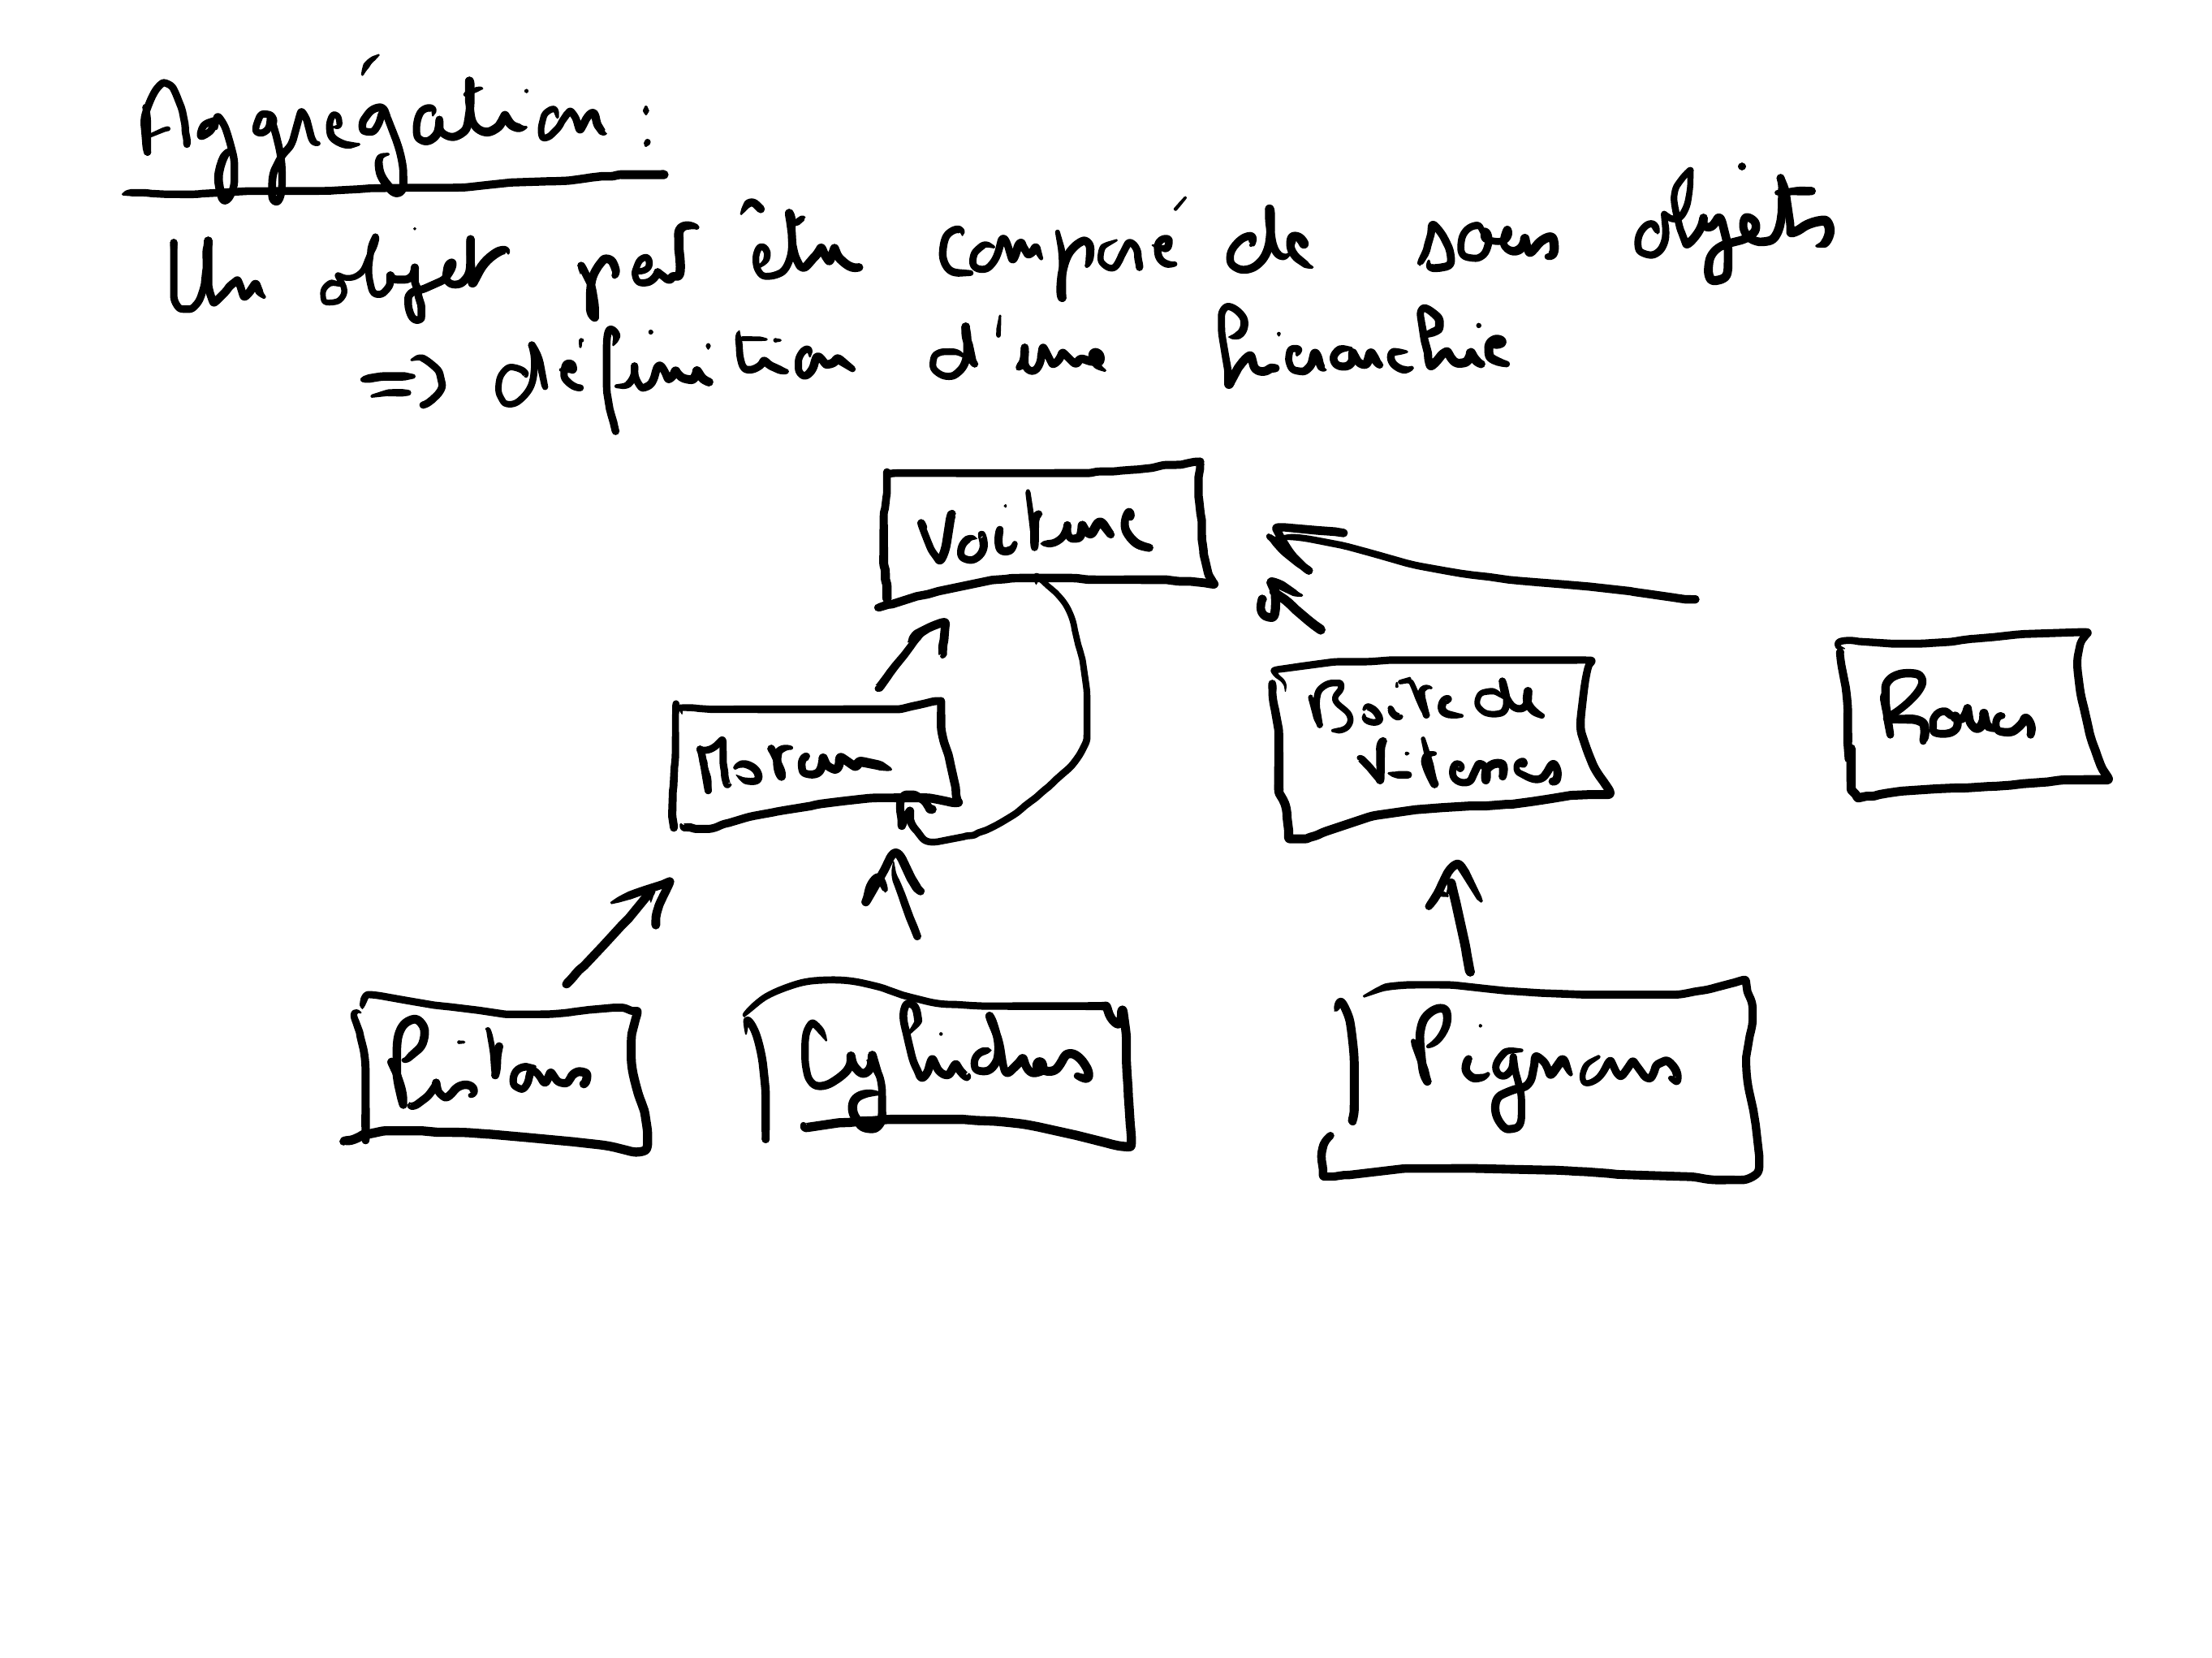 Aggrégation :
Un objet peut être composé de sous objets
=> définition d'une hiérarchie
Voiture
Moteur
Boîte de
Vitesses
Roues
Pistons
Cylindres
Pignons